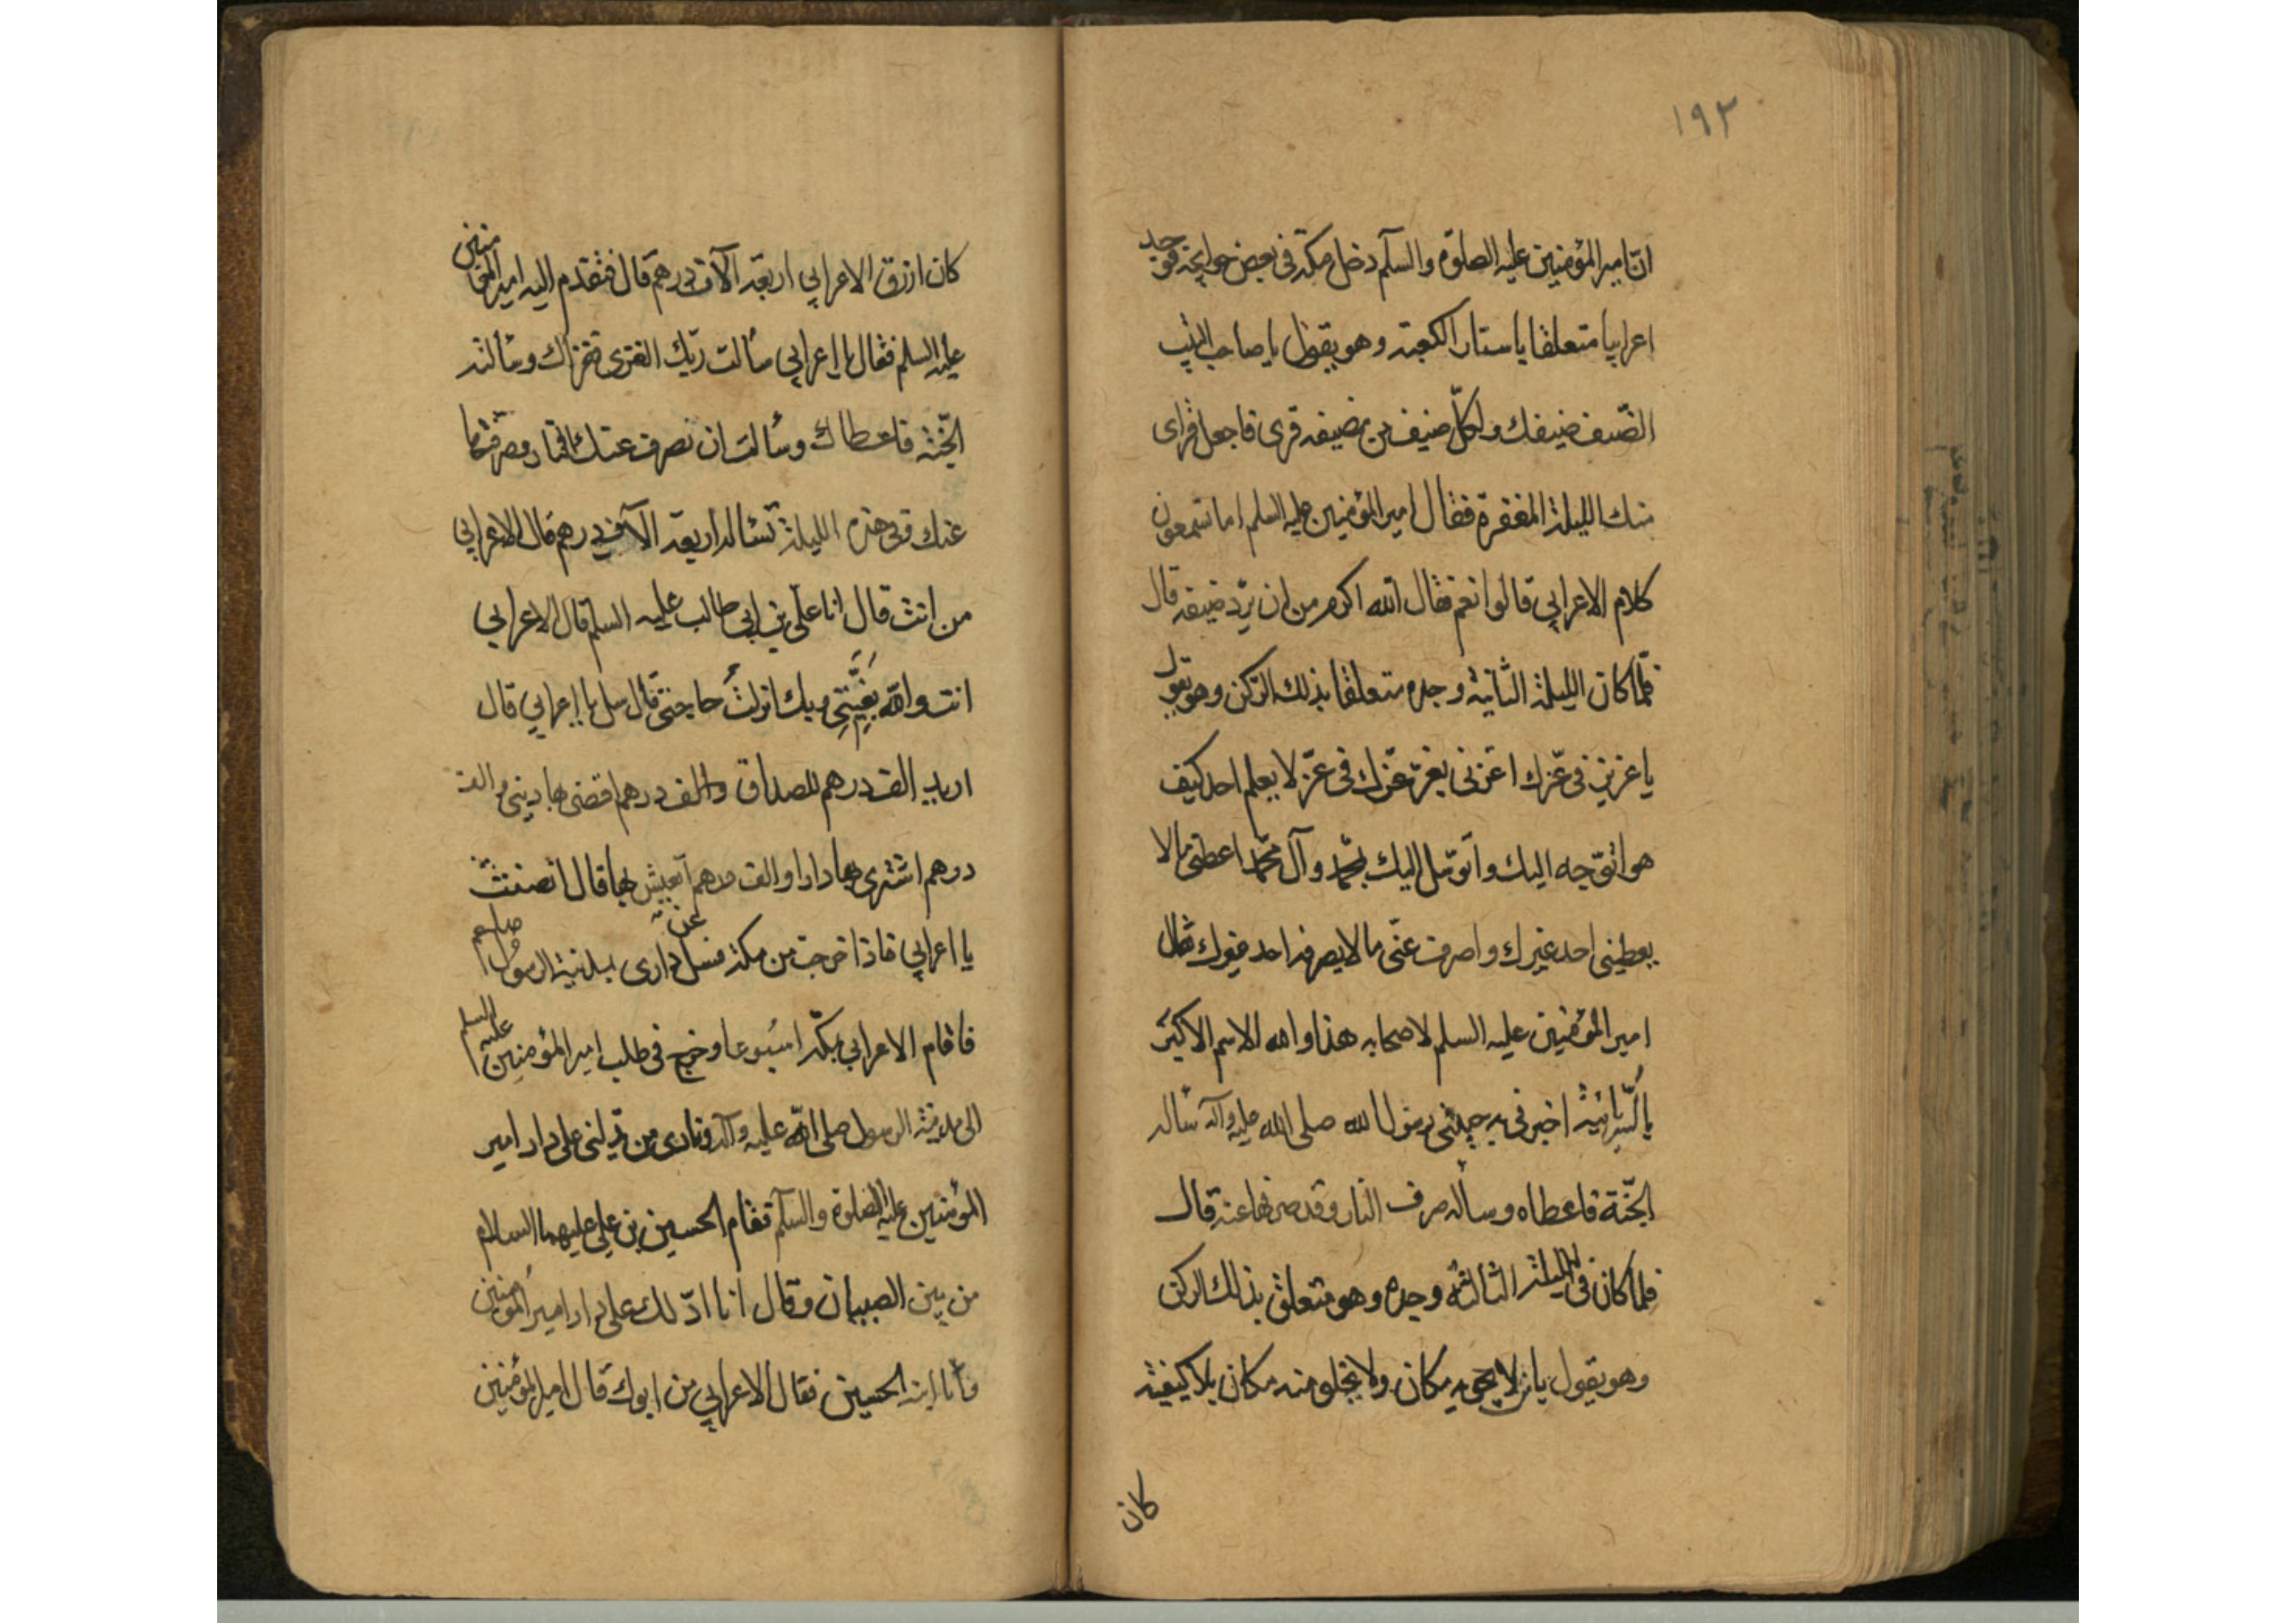 ١٩٢
ان امير المؤمنين عليه الصلوة والسلم دخل مكة فى بعض حوايجه فوجد
اعرابيا متعلقا باستار الكعبة وهو يقول يا صاحب البيت
الضيف ضيفك ولكل ضيف من مضيفه قرى فاجعل قراى
منك الليلة المغفرة فقال امير المؤمنين عليه السلم اما تسمعون
كلام الاعرابي قالوا نعم فقال الله اكرم من ان يرد ضيفه قال
فلما كان الليلة الثانية وجده متعلقا بذلك الركن وهو يقول
يا عزيز فى عزك اعزنى بعز عزك فى عز لا يعلم احد كيف
هو اتوجه اليك واتوسل اليك بمحمد وآل محمد اعطنى ما لا
يعطينى احد غيرك واصرف عنى ما لا يصرفه احد غيرك فقال
امير المؤمنين عليه السلم لاصحابه هذا والله الاسم الاكبر
بالسريانية اخبرنى به حبيبى رسول الله صلى الله عليه وآله سأله
الجنة فاعطاه وسأله صرف النار وقد صرفها عنه قال
فلما كان فى الليلة الثالثة وجده وهو متعلق بذلك الركن
وهو يقول يا من لا يحويه مكان ولا يخلو منه مكان بلا كيفية
كان
كان ارزق الاعرابي اربعة الآف درهم قال فتقدم اليه امير المؤمنين
عليه السلم فقال يا اعرابي سألت ربك القرى فقراك وسألته
الجنة فاعطاك وسألت ان يصرف عنك النار وصرفها
عنك وفى هذه الليلة تسأله اربعة الآف درهم قال الاعرابي
من انت قال انا على بن ابى طالب عليه السلم قال الاعرابي
انت والله بغيتى وبك انزلت حاجتى قال سل يا اعرابي قال
اريد الف درهم للصداق والف درهم اقضى بها دينى والف
درهم اشترى بها دارا والف درهم اتعيش بها قال انصفت
يا اعرابي فاذا خرجت من مكة فسل عن دارى بمدينة الرسول صلعم
فاقام الاعرابي بمكة اسبوعا وخرج فى طلب امير المؤمنين عليه السلم
الى مدينة الرسول صلى الله عليه وآله ونادى من يدلنى على دار امير
المؤمنين عليه الصلوة والسلم فقام الحسين بن علي عليهما السلام
من بين الصبيان وقال انا ادلك على دار امير المؤمنين
وانا ابنه الحسين فقال الاعرابي من ابوك قال امير المؤمنين